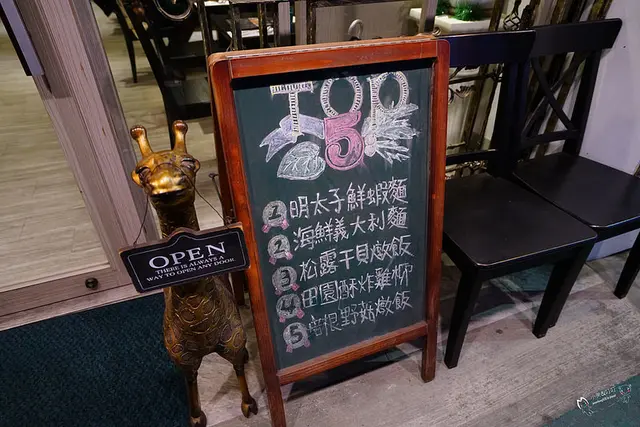 TOP
5
OPEN
THERE IS ALWAYS A
WAY TO OPEN ANY DOOR
1 明太子鮮蝦麵
2 海鮮義大利麵
3 松露干貝燉飯
4 田園酥炸雞柳
5 培根野菇燉飯